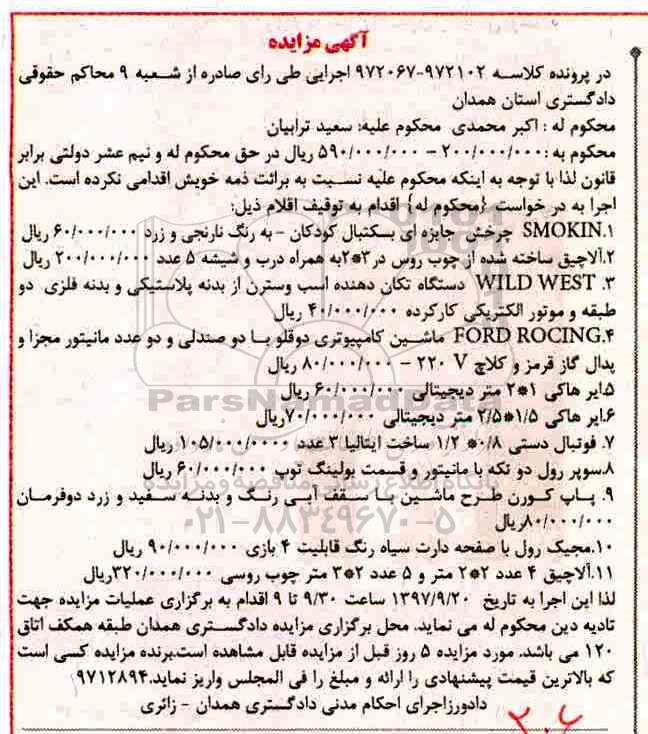 آگهی مزایده
در پرونده کلاسه ۹۷۲۱۰۲-۹۷۲۰۶۷ اجرایی طی رای صادره از شعبه ۹ محاکم حقوقی
دادگستری استان همدان
محکوم له : اکبر محمدی محکوم علیه: سعید ترابیان
محکوم به :۲۰۰/۰۰۰/۰۰۰ - ۵۹۰/۰۰۰/۰۰۰ ریال در حق محکوم له و نیم عشر دولتی برابر
قانون لذا با توجه به اینکه محکوم علیه نسبت به برائت ذمه خویش اقدامی نکرده است. این
اجرا به در خواست {محکوم له} اقدام به توقیف اقلام ذیل:
۱.SMOKIN چرخش جایزه ای بسکتبال کودکان - به رنگ نارنجی و زرد ۶۰/۰۰۰/۰۰۰ ریال
۲.آلاچیق ساخته شده از چوب روس در۳*۲به همراه درب و شیشه ۵ عدد ۲۰۰/۰۰۰/۰۰۰ ریال
۳. WILD WEST دستگاه تکان دهنده اسب وسترن از بدنه پلاستیکی و بدنه فلزی دو
طبقه و موتور الکتریکی کارکرده ۴۰/۰۰۰/۰۰۰ ریال
۴.FORD ROCING ماشین کامپیوتری دوقلو با دو صندلی و دو عدد مانیتور مجزا و
پدال گاز قرمز و کلاچ V ۲۲۰ - ۸۰/۰۰۰/۰۰۰ ریال
۵.ایر هاکی ۱*۲ متر دیجیتالی ۶۰/۰۰۰/۰۰۰ ریال
۶.ایر هاکی ۱/۵*۲/۵ متر دیجیتالی ۷۰/۰۰۰/۰۰۰ریال
۷. فوتبال دستی ۰/۸* ۱/۲ ساخت ایتالیا ۳ عدد ۱۰۵/۰۰۰/۰۰۰۰ ریال
۸.سوپر رول دو تکه با مانیتور و قسمت بولینگ توپ ۶۰/۰۰۰/۰۰۰ ریال
۹. پاپ کورن طرح ماشین با سقف آبی رنگ و بدنه سفید و زرد دوفرمان
۸۰/۰۰۰/۰۰۰ریال
۱۰.مجیک رول با صفحه دارت سیاه رنگ قابلیت ۴ بازی ۹۰/۰۰۰/۰۰۰ ریال
۱۱.آلاچیق ۴ عدد ۲*۲ متر و ۵ عدد ۲*۳ متر چوب روسی ۳۲۰/۰۰۰/۰۰۰ریال
لذا این اجرا به تاریخ ۱۳۹۷/۹/۲۰ ساعت ۹/۳۰ تا ۹ اقدام به برگزاری عملیات مزایده جهت
تادیه دین محکوم له می نماید. محل برگزاری مزایده دادگستری همدان طبقه همکف اتاق
۱۲۰ می باشد. مورد مزایده ۵ روز قبل از مزایده قابل مشاهده است.برنده مزایده کسی است
که بالاترین قیمت پیشنهادی را ارائه و مبلغ را فی المجلس واریز نماید.۹۷۱۲۸۹۴
دادورزاجرای احکام مدنی دادگستری همدان - زائری
ParsNamadData
پایگاه اطلاع رسانی مناقصه و مزایده
۰۲۱-۸۸۳۴۹۶۷۰-۵